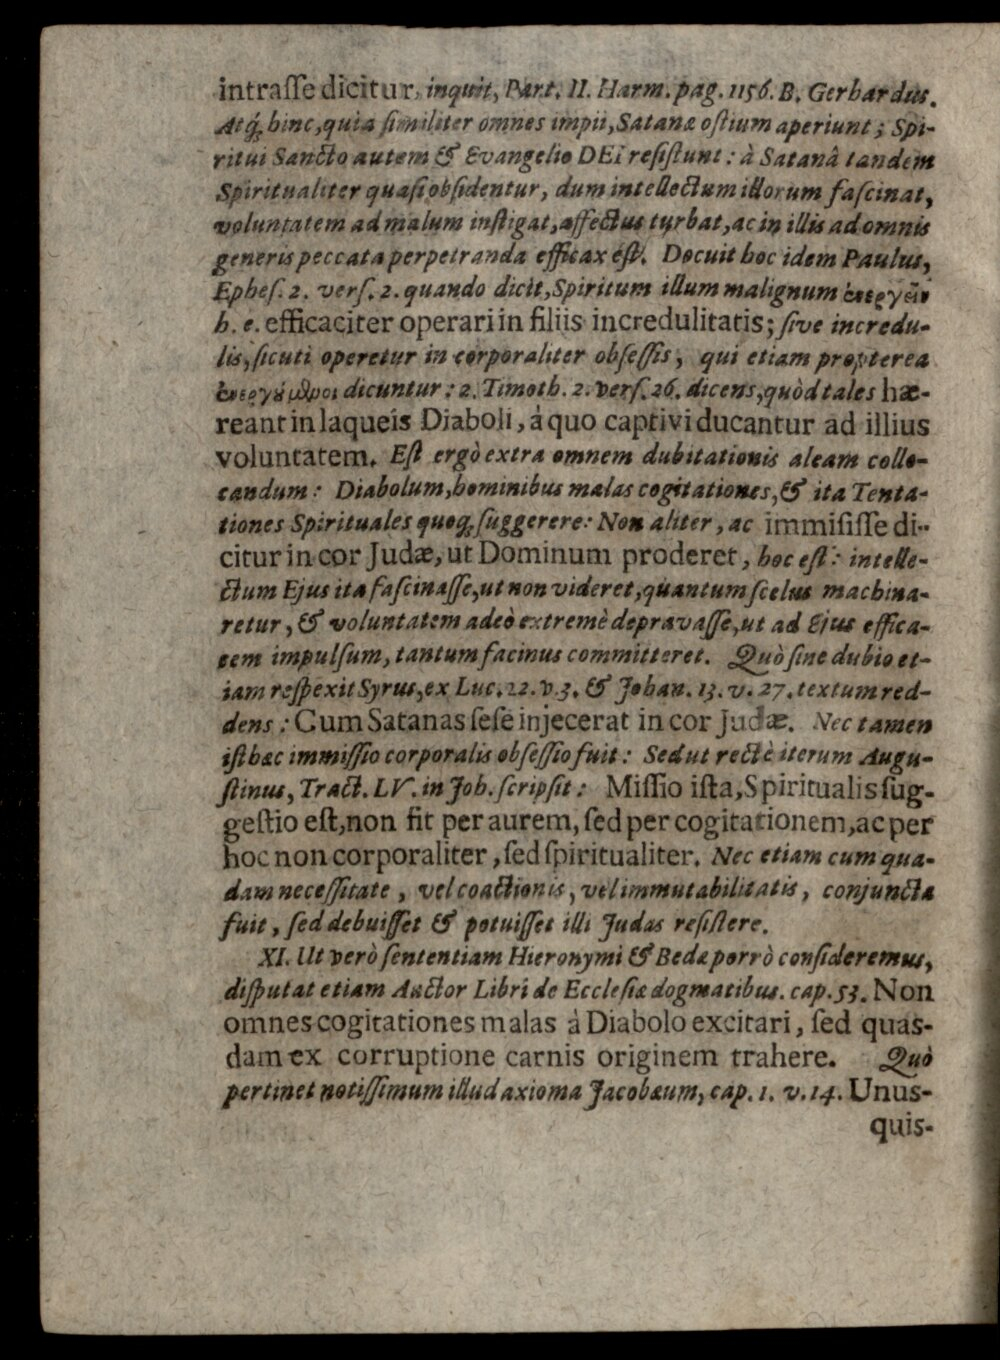 intraſſe dicitur, inquit, Part. II. Harm. pag. 1156. B. Gerhardus.
Atq́; hinc, quia ſimiliter omnes impii, Satanæ oſtium aperiunt; Spi-
ritui Sancto autem & Evangelio DEI reſiſtunt: à Satanâ tandem
Spiritualiter quaſi obſidentur, dum intellectum illorum faſcinat,
voluntatem ad malum inſtigat, affectus turbat, ac in illis ad omnis
generis peccata perpetranda efficax eſt. Docuit hoc idem Paulus,
Epheſ. 2. verſ. 2. quando dicit, Spiritum illum malignum ἐνεργεῖν
h. e. efficaciter operari in filiis incredulitatis; ſive incredu-
lis, ſicuti operetur in corporaliter obſeſſis, qui etiam propterea
ἐνεργούμενοι dicuntur: 2. Timoth. 2. verſ. 26. dicens, quòd tales hæ-
reant in laqueis Diaboli, à quo captivi ducantur ad illius
voluntatem. Eſt ergò extra omnem dubitationis aleam collo-
candum: Diabolum, hominibus malas cogitationes, & ita Tenta-
tiones Spirituales quoq; ſuggerere: Non aliter, ac immiſiſſe di-
citur in cor Judæ, ut Dominum proderet, hoc eſt: intelle-
ctum Ejus ita faſcinaſſe, ut non videret, quantum ſcelus machina-
retur, & voluntatem adeò extremè depravaſſe, ut ad Ejus effica-
cem impulſum, tantum facinus committeret. Quò ſine dubio et-
iam reſpexit Syrus, ex Luc. 22. v. 3. & Johan. 13. v. 27. textum red-
dens: Cum Satanas ſeſe injecerat in cor Judæ. Nec tamen
iſthæc immiſſio corporalis obſeſſio fuit: Sed ut rectè iterum Augu-
ſtinus, Tract. LV. in Joh. ſcripſit: Miſſio iſta, Spiritualis ſug-
geſtio eſt, non fit per aurem, ſed per cogitationem, ac per
hoc non corporaliter, ſed ſpiritualiter. Nec etiam cum qua-
dam neceſſitate, vel coactionis, vel immutabilitatis, conjuncta
fuit, ſed debuiſſet & potuiſſet illi Judas reſiſtere.
XI. Ut verò ſententiam Hieronymi & Bedæ porrò conſideremus,
diſputat etiam Auctor Libri de Eccleſiæ dogmatibus. cap. 53. Non
omnes cogitationes malas à Diabolo excitari, ſed quas-
dam ex corruptione carnis originem trahere. Quò
pertinet notiſſimum illud axioma Jacobæum, cap. 1. v. 14. Unus-
quis-